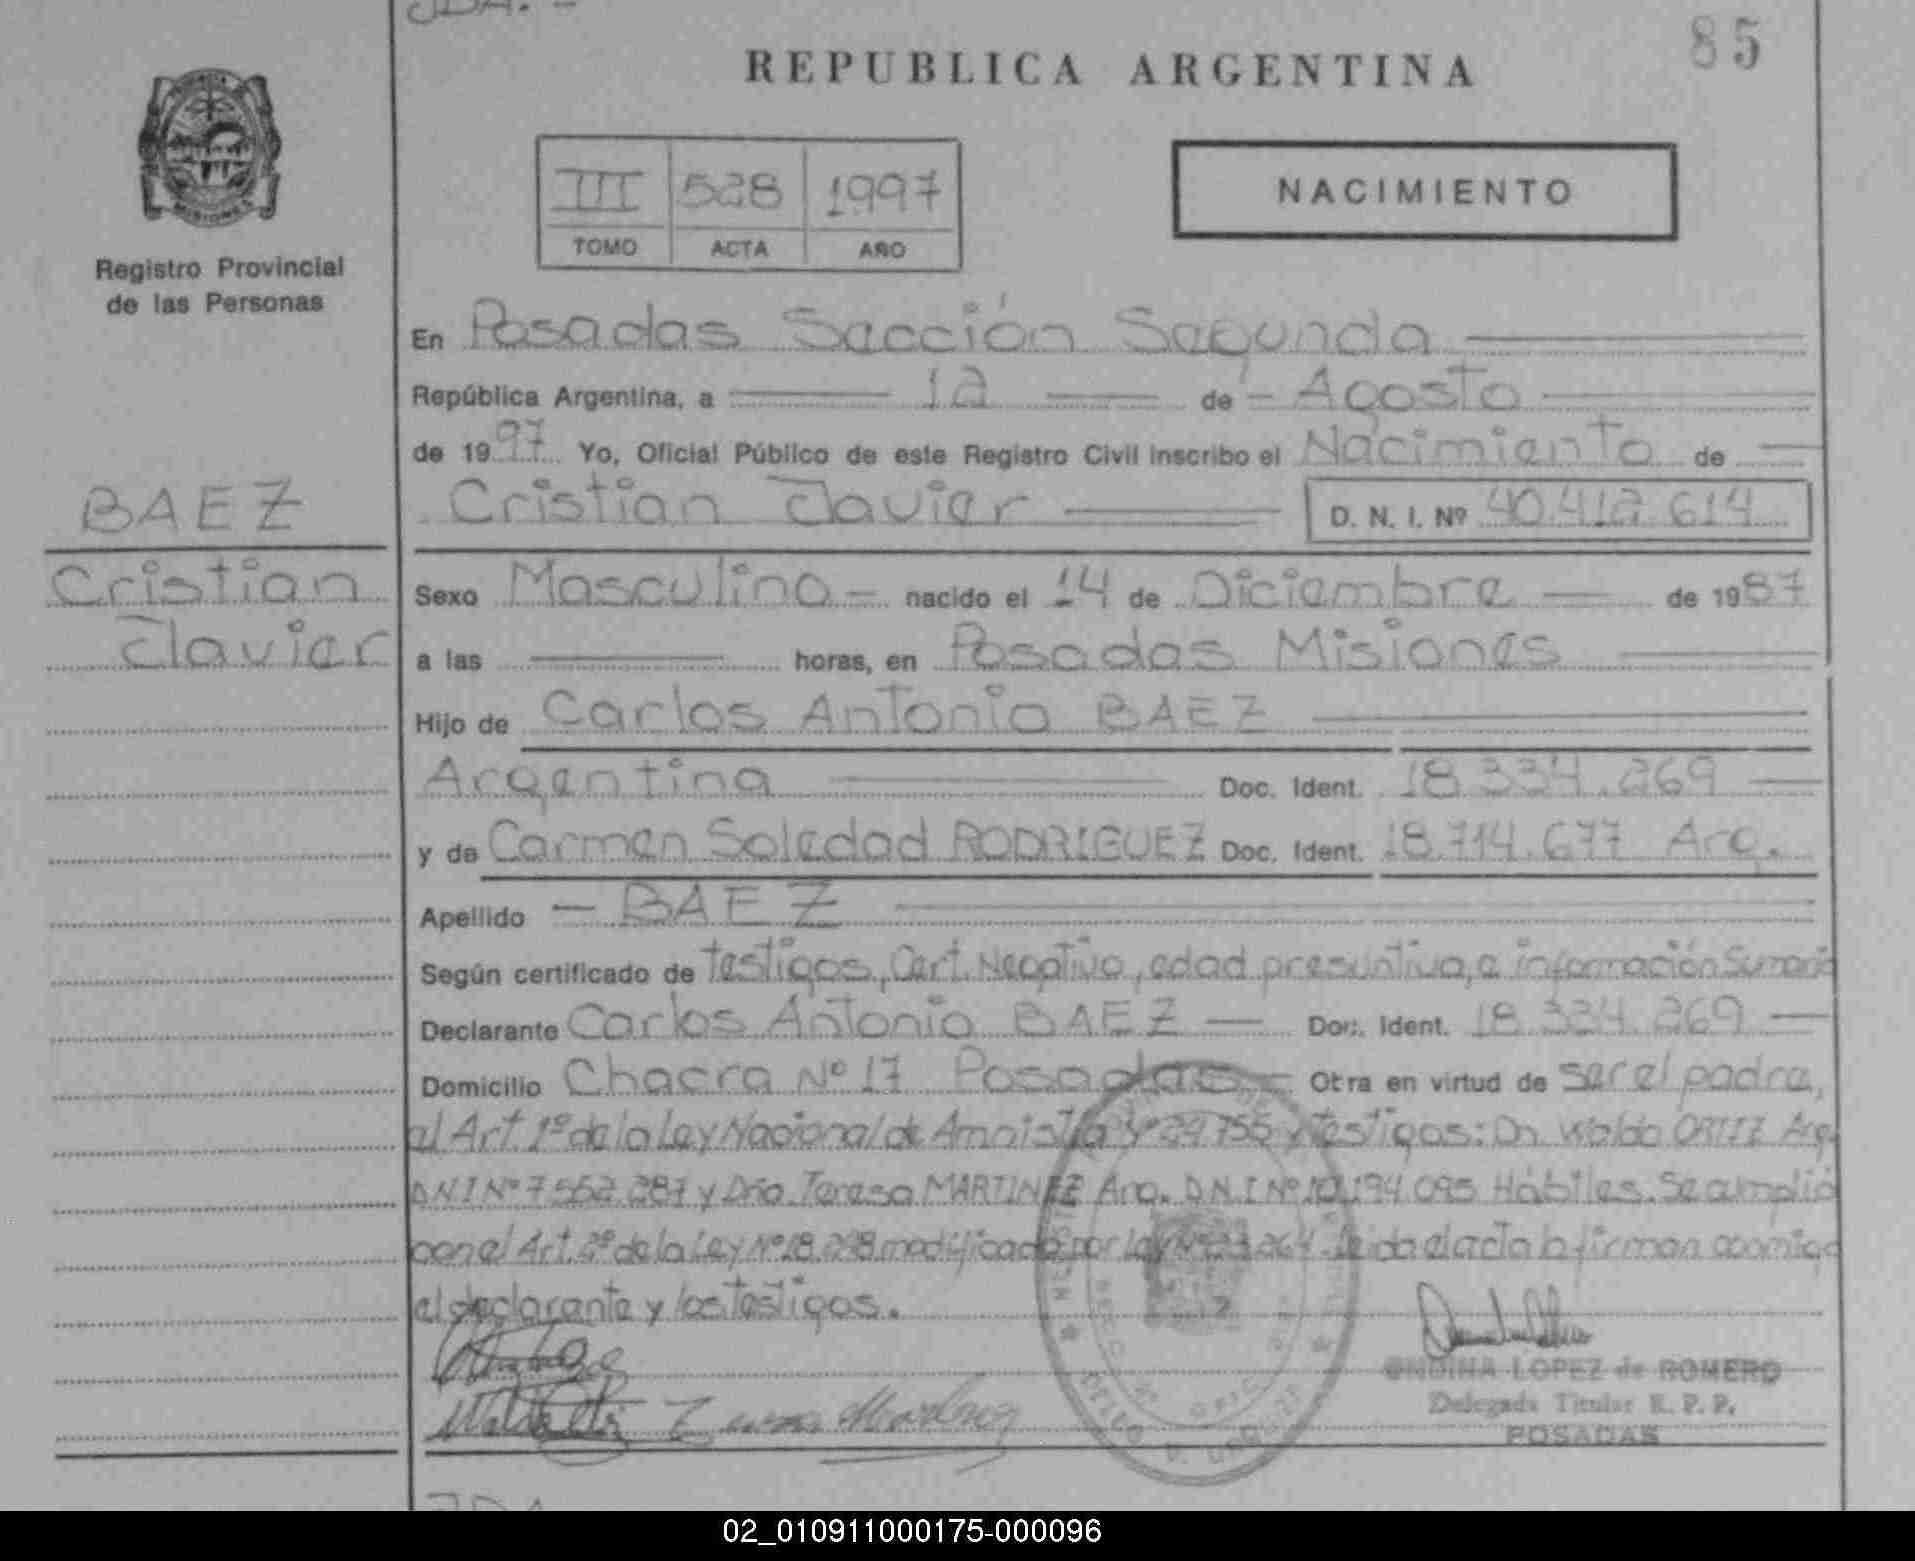 JDA. -
85
REPUBLICA ARGENTINA
MISIONES
Registro Provincial
de las Personas
III 528 1997
TOMO ACTA AÑO
NACIMIENTO
En Posadas Sección Segunda
República Argentina, a 12 de Agosto
de 1997 Yo, Oficial Público de este Registro Civil inscribo el Nacimiento de
Cristian Javier D. N. I. Nº 40.412.614
BAEZ
Cristian
Javier
Sexo Masculino nacido el 14 de Diciembre de 1987
a las horas, en Posadas Misiones
Hijo de Carlos Antonio BAEZ
Argentina Doc. Ident. 18.334.269
y de Carmen Soledad RODRIGUEZ Doc. Ident. 18.714.677 Arg.
Apellido BAEZ
Según certificado de testigos, Cert. Negativo, edad presuntiva, e información Sumaria
Declarante Carlos Antonio BAEZ Doc. Ident. 18.334.269
Domicilio Chacra Nº 17 Posadas Otra en virtud de ser el padre,
el Art. 1º de la Ley Nacional de Amnistía Nº 24.755 y testigos: Dn Waldo ORTIZ Arg.
D.N.I Nº 7.552.287 y Dña. Teresa MARTINEZ Arg. D.N.I Nº 10.194.095 Hábiles. Se cumplió
con el Art. 2º de la Ley Nº 18.248 modificado por Ley Nº 23.264. Leida el acta la firman conmigo
el declarante y los testigos.
ONDINA LOPEZ de ROMERO
Delegada Titular R. P. P.
POSADAS
JDA
02_010911000175-000096